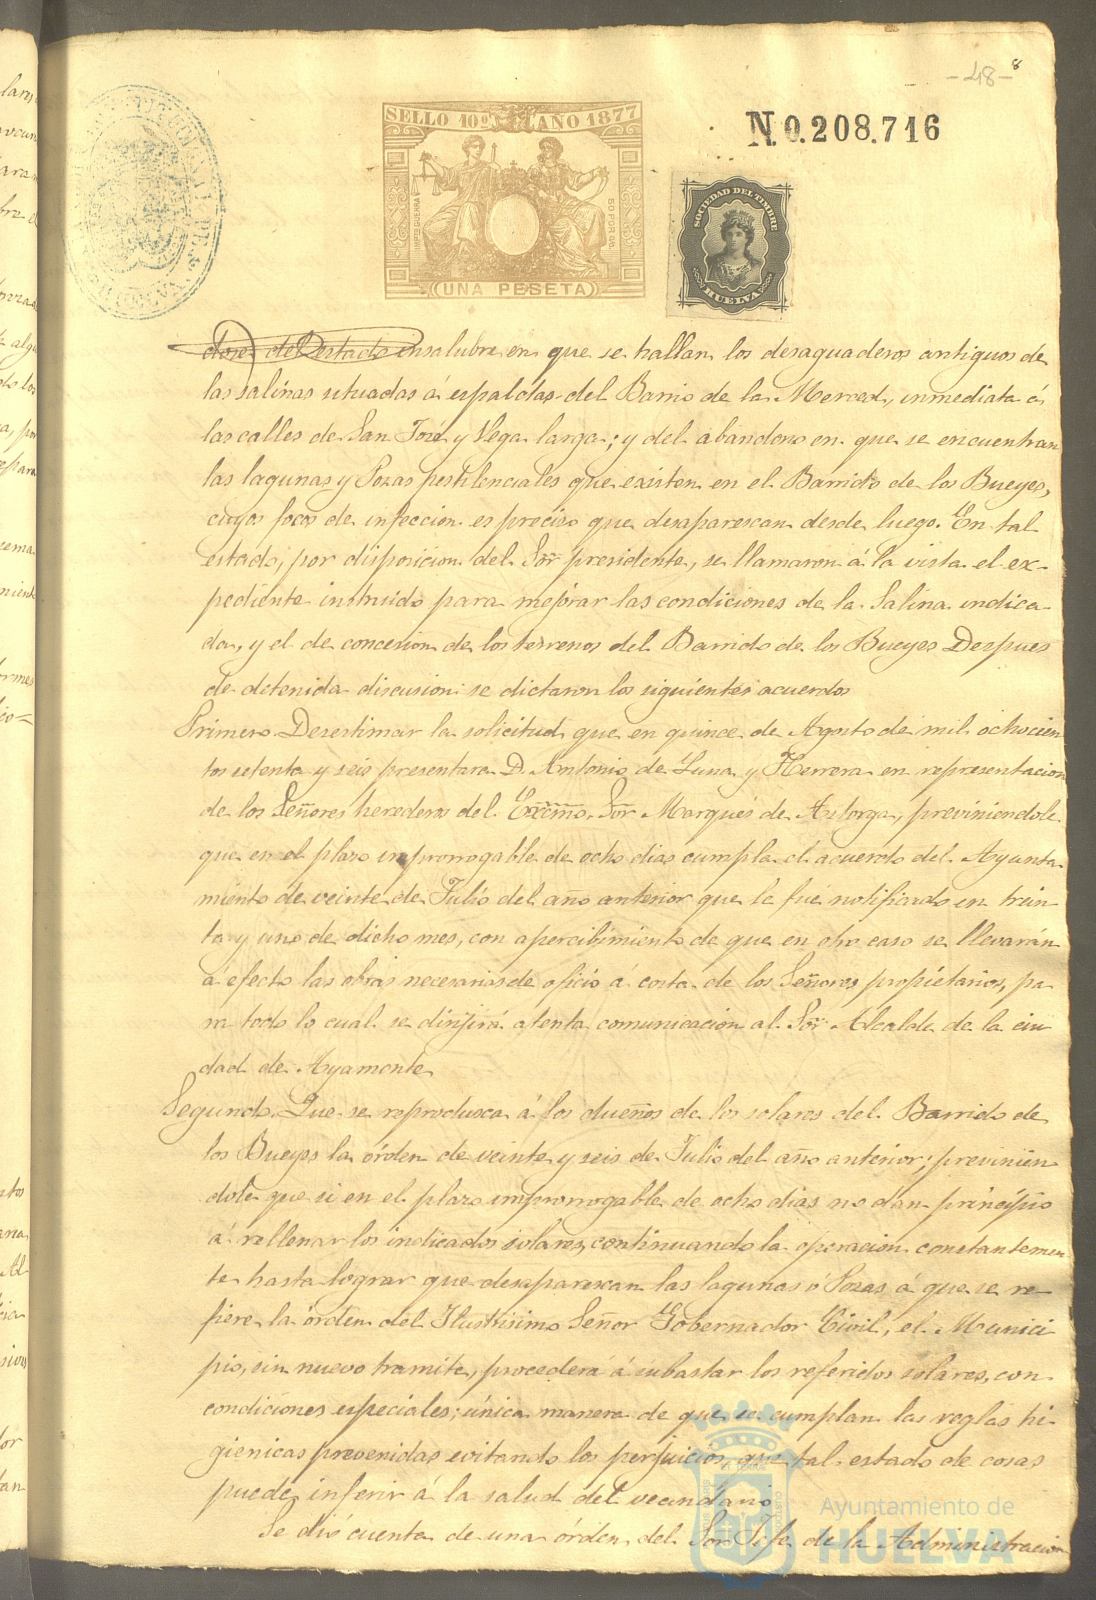 -48- 8
SELLO 10º AÑO 1877
N.0.208.716
SOCIEDAD DEL TIMBRE
50 POR 05.
HUELVA
(UNA PESETA)
dores del estado insalubre en que se hallan los desaguaderos antiguos de
las salinas situadas á espaldas del Barrio de la Merced, inmediata á
las calles de San José y Vega larga; y del abandono en que se encuentran
las lagunas y Pozas pestilenciales que existen en el Barrido de los Bueyes,
cuyos focos de infeccion es preciso que desaparescan desde luego. En tal
estado, por disposicion del Sor presidente, se llamaron á la vista el ex-
pediente instruido para mejorar las condiciones de la Salina indica-
da, y el de concesion de los terrenos del Barrido de los Bueyes Despues
de detenida discusion se dictaron los siguientes acuerdos
Primero. Desestimar la solicitud que en quince de Agosto de mil ochocien
tos setenta y seis presentara D. Antonio de Luna y Herrera en representacion
de los Señores herederos del Excmo. Sor Marqués de Astorga, previniéndole
que en el plazo improrrogable de ocho dias cumpla el acuerdo del Ayunta-
miento de veinte de Julio del año anterior que le fué notificado en trein
ta y uno de dicho mes, con apercibimiento de que en otro caso se llevarán
á efecto las obras necesarias de oficio á costa de los Señores propietarios, pa
ra todo lo cual se dirijirá atenta comunicacion al Sor Alcalde de la ciu
dad de Ayamonte
Segundo. Que se reprodusca á los dueños de los solares del Barrido de
los Bueyes la órden de veinte y seis de Julio del año anterior; previnien
dole que si en el plazo improrrogable de ocho dias no dan principio
á rellenar los indicados solares, continuando la operacion constantemen
te hasta lograr que desaparescan las lagunas ó Pozas á que se re-
fiere la órden del Ilustrisimo Señor Gobernador Civil, el Munici
pio, sin nuevo tramite, procederá á subastar los referidos solares, con
condiciones especiales; única manera de que se cumplan las reglas hi-
gienicas prevenidas evitando los perjuicios que tal estado de cosas
puede inferir á la salud del vecindario
Se dió cuenta de una órden del Sor Jefe de la Administracion
Ayuntamiento de
HUELVA